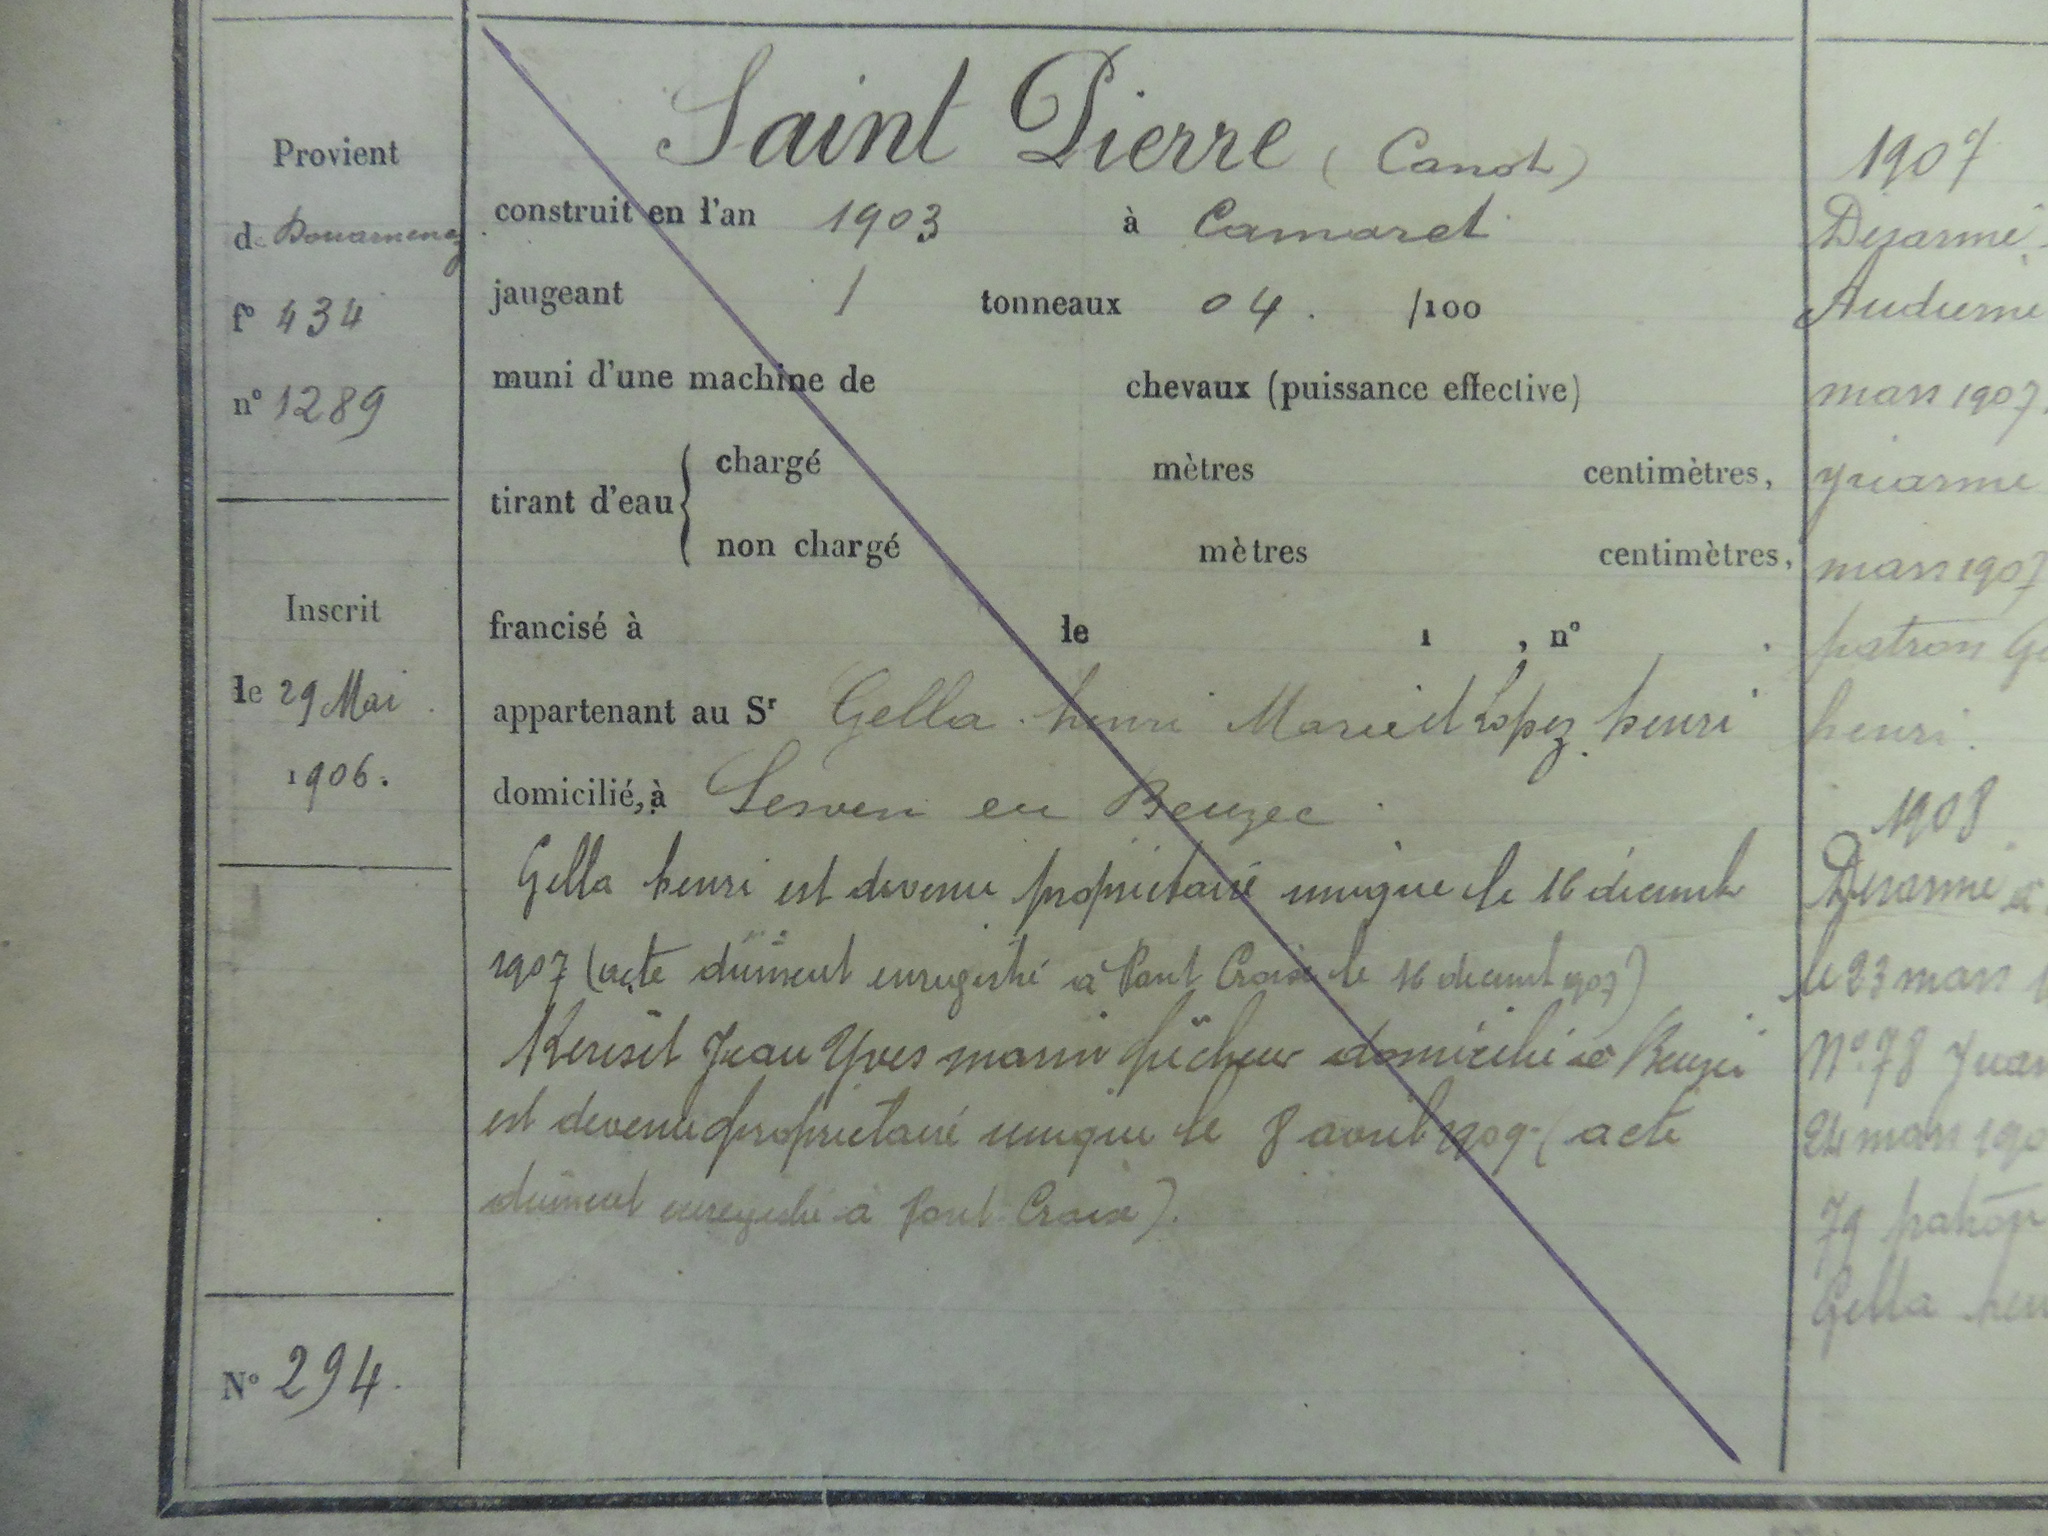 Provient
de Douarnenez
fº 434
nº 1289
Inscrit
le 29 Mai
1906.
Nº 294.
Saint Pierre (Canot)
construit en l'an 1903 à Camaret
jaugeant 1 tonneaux 04. /100
muni d'une machine de chevaux (puissance effective)
tirant d'eau { chargé mètres centimètres,
non chargé mètres centimètres,
francisé à le 1 , nº .
appartenant au Sr Gella henri Marie et Lopez henri
domicilié, à Lesven en Beuzec.
Gella henri est devenu propriétaire unique le 16 décembre
1907 (acte dûment enregistré à Pont Croix le 16 décembre 1907)
Kerisit Jean Yves marin pêcheur domicilié à Beuzec
est devenu propriétaire unique le 8 avril 1909 (acte
dûment enregistré à Pont Croix).
1907
Désarmé
Audierne
mars 1907.
y réarmé
mars 1907
patron Ge
henri.
1908
Désarmé à
le 23 mars 1
Nº 78
24 mars 190
79 patron
Gella hen